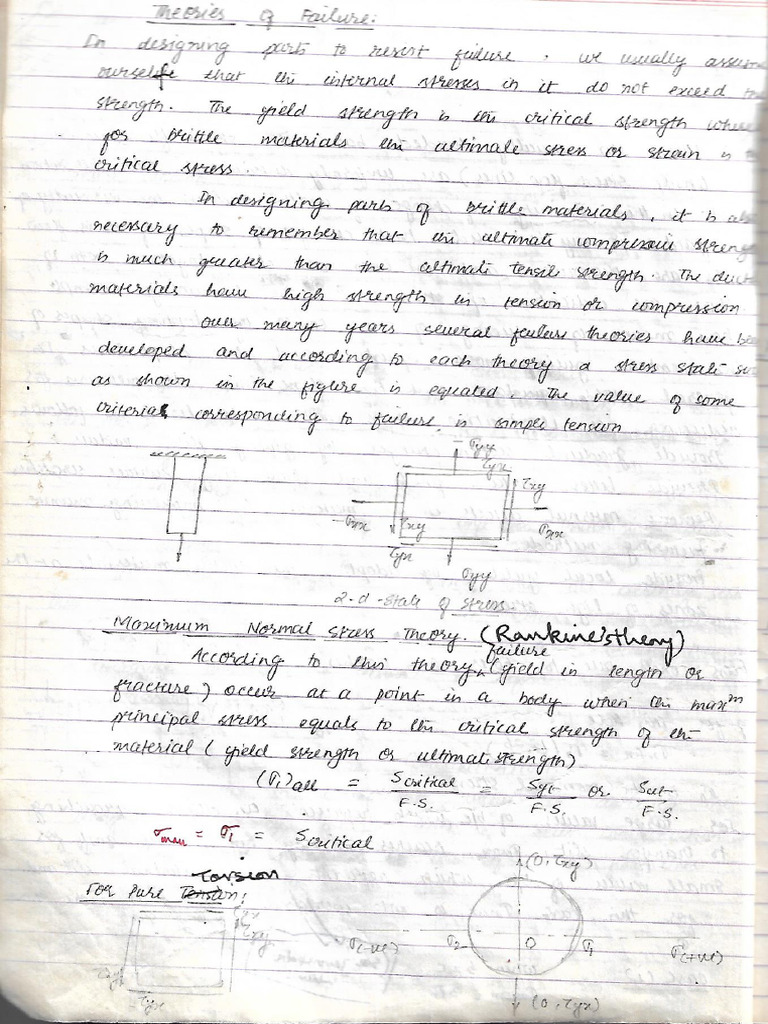 Theories of Failure:
In designing parts to resist failure. we usually assum
ourselfe that the internal stresses in it do not exceed the
strength. The yield strength is the critical strength where
for brittle materials the ultimate stress or strain is
critical stress.
In designing parts of brittle materials, it is als
necessary to remember that the ultimate compressive streng
is much greater than the ultimate tensile strength. The duct
materials have high strength in tension or compression
Over many years several failure theories have be
developed and according to each theory a stress state su
as shown in the figure is equated. The value of some
criterial corresponding to failure, is simple tension
σyy
τyx
τxy
σxx
τxy
σxx
τyx
σyy
2-d-state of stress
Maximum Normal Stress Theory. (Rankine's theory)
failure
According to this theory, (yield in length or
fracture) occur at a point in a body when the maxᵐ
principal stress equals to the critical strength of the
material (yield strength or ultimate strength)
(σ1)all = Scritical/F.S. = Syt/F.S. or Sut/F.S.
σmax = σ1 = Scritical
(0, τxy)
Torsion
For Pure Tension:
τxy
σ(-ve)
σ2
0
σ1
σ(+ve)
τxy
τyx
(0, τyx)